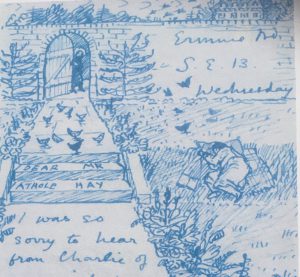 Ermine Rd.
S.E. 13.
Wednesday
DEAR MR
ATHOLE HAY
I was so
sorry to hear
from Charlie of